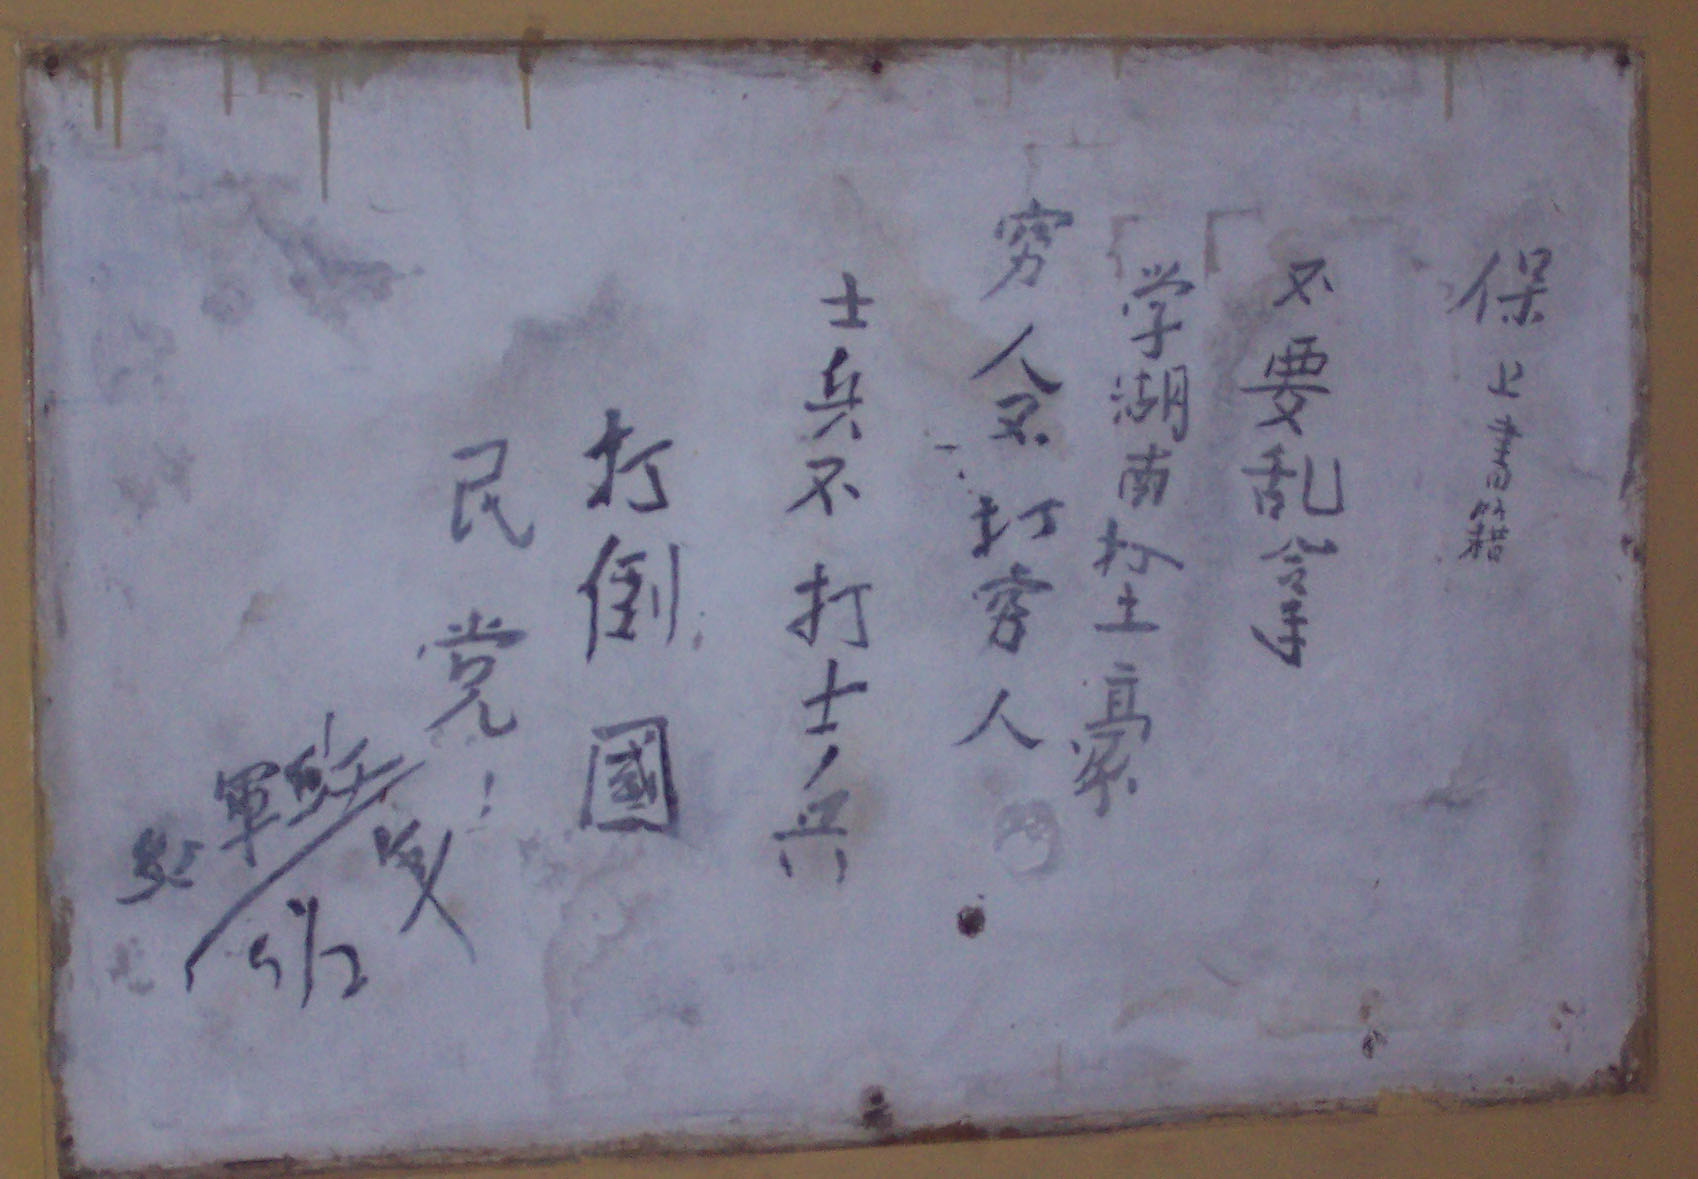 保上書籍
不要乱拿
学湖南打土豪
穷人不打穷人
士兵不打士兵
打倒國
民党!
紅軍